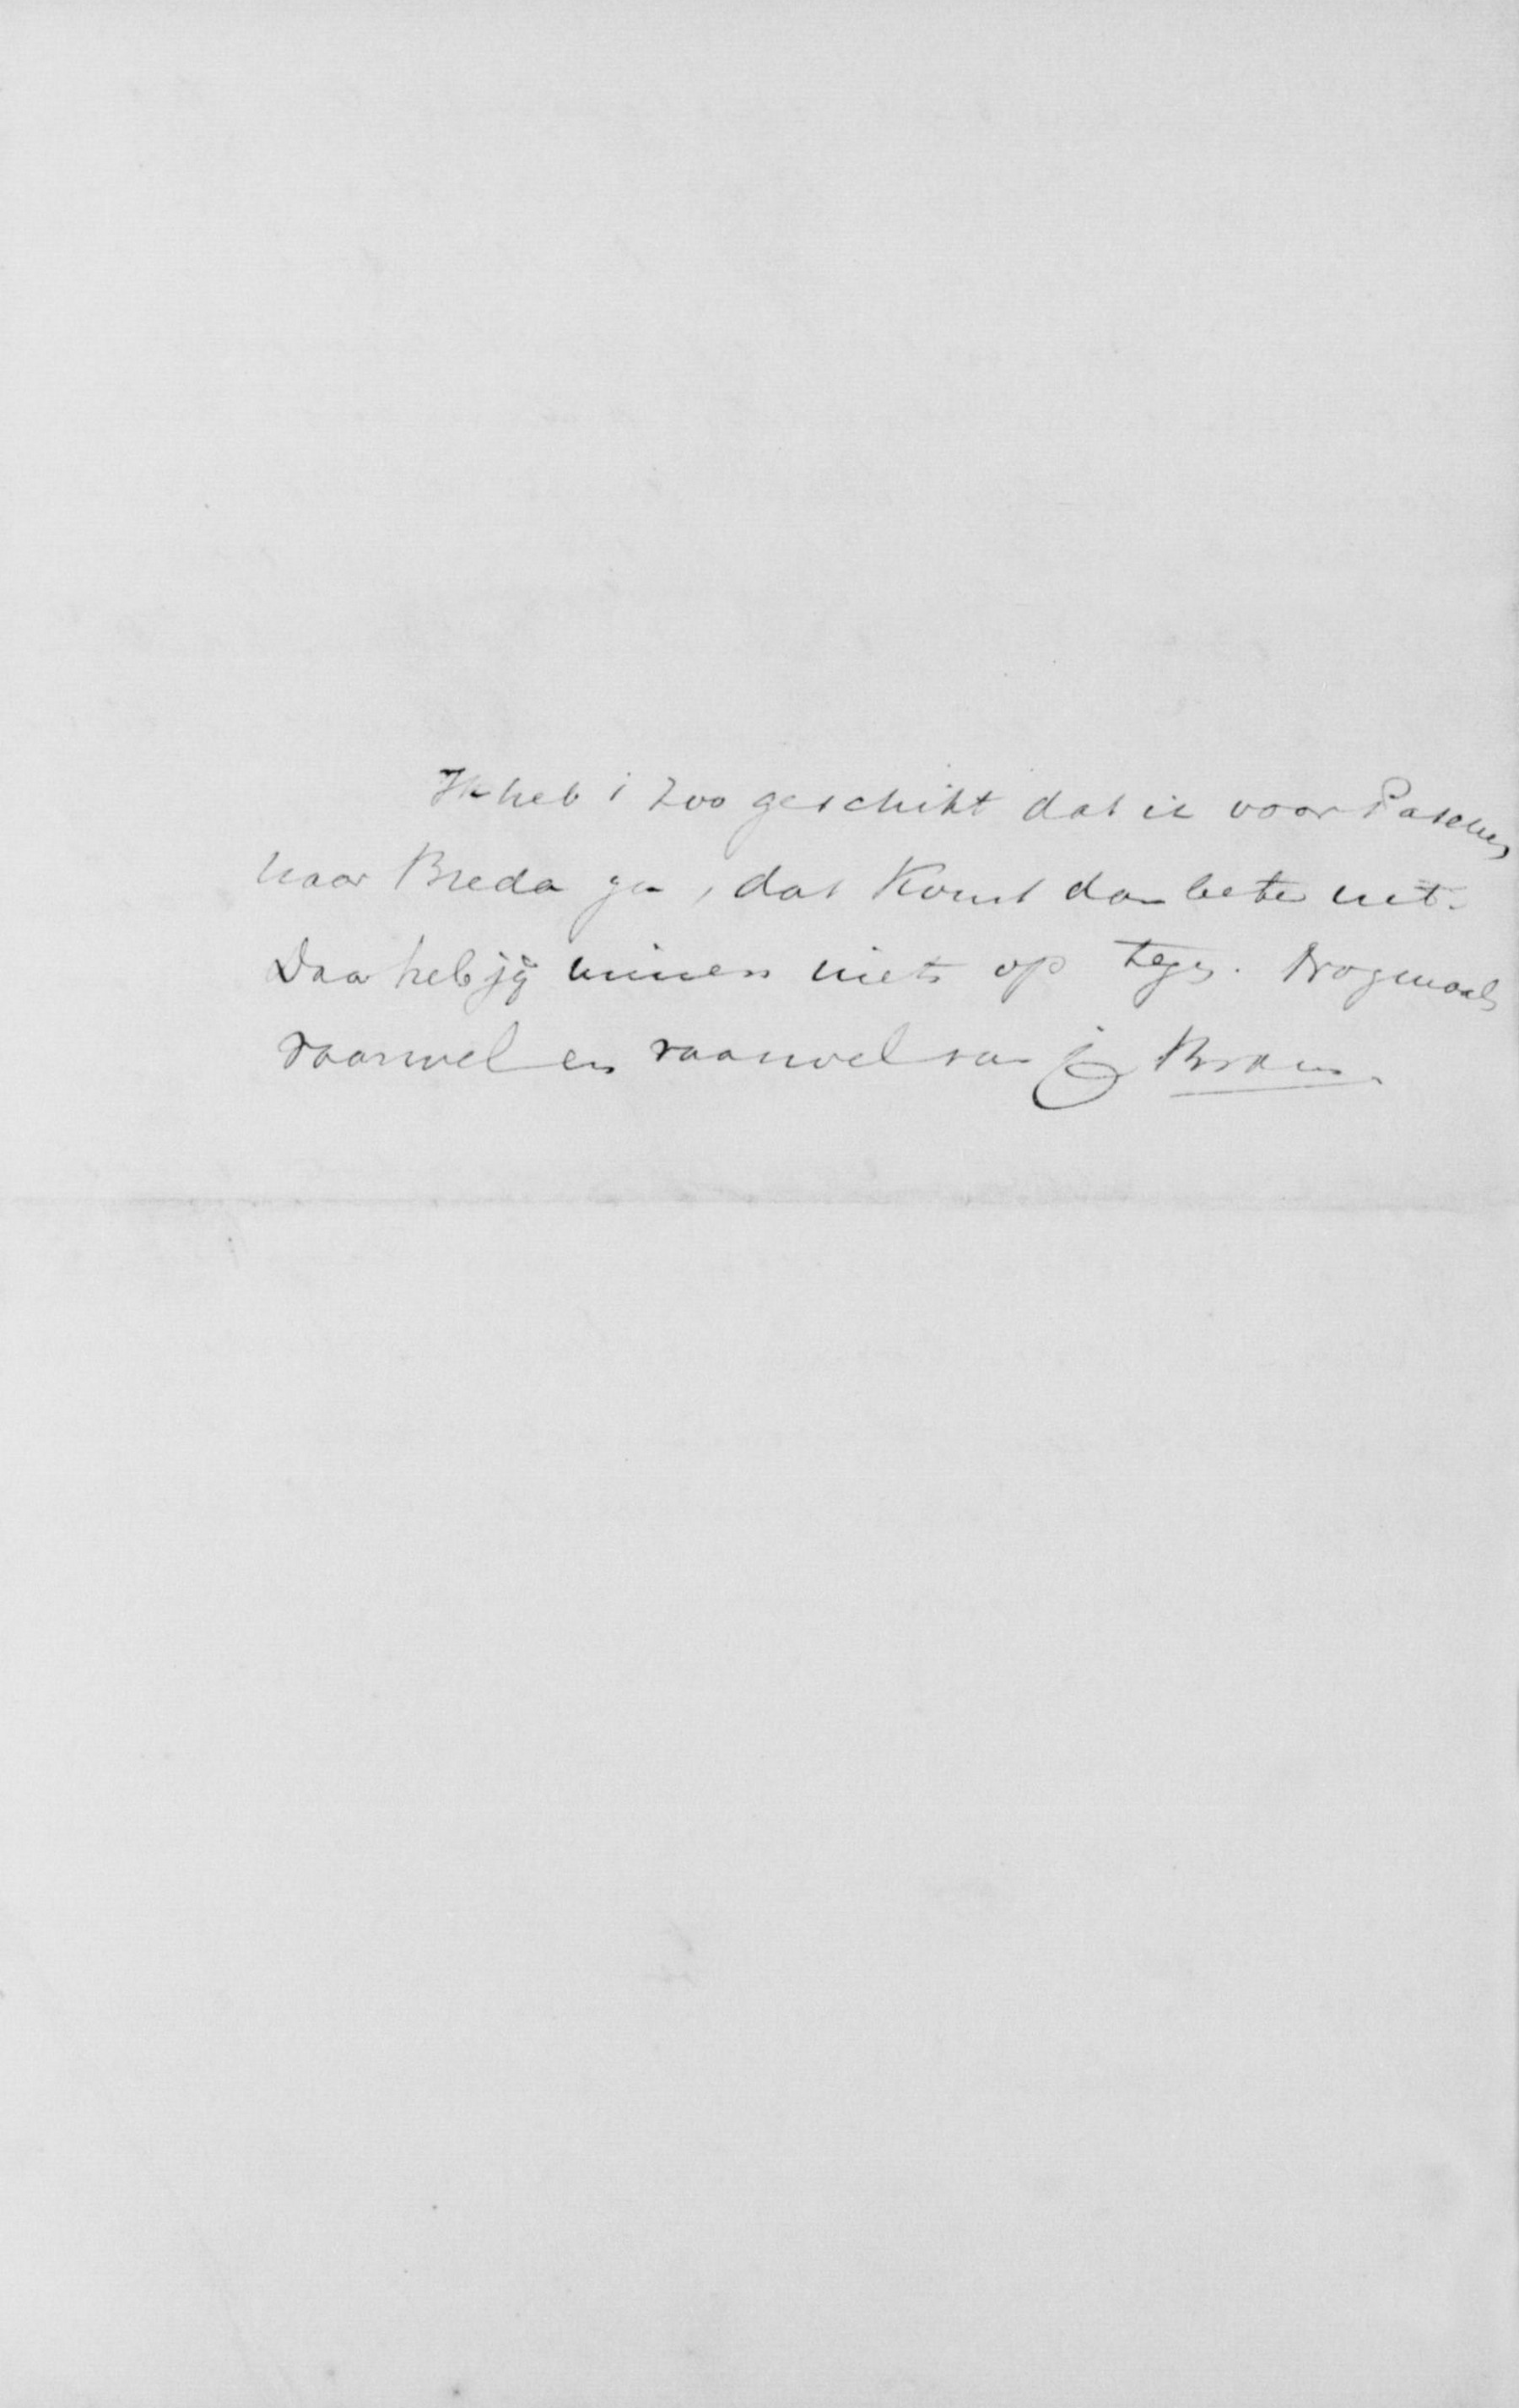 Ik heb 't zoo geschikt dat ik voor Paschen
naar Breda ga, dat komt dan beter uit.
Daar heb jij immers niets op tegen. Nogmaals
vaarwel en vaarwel van je Bram.